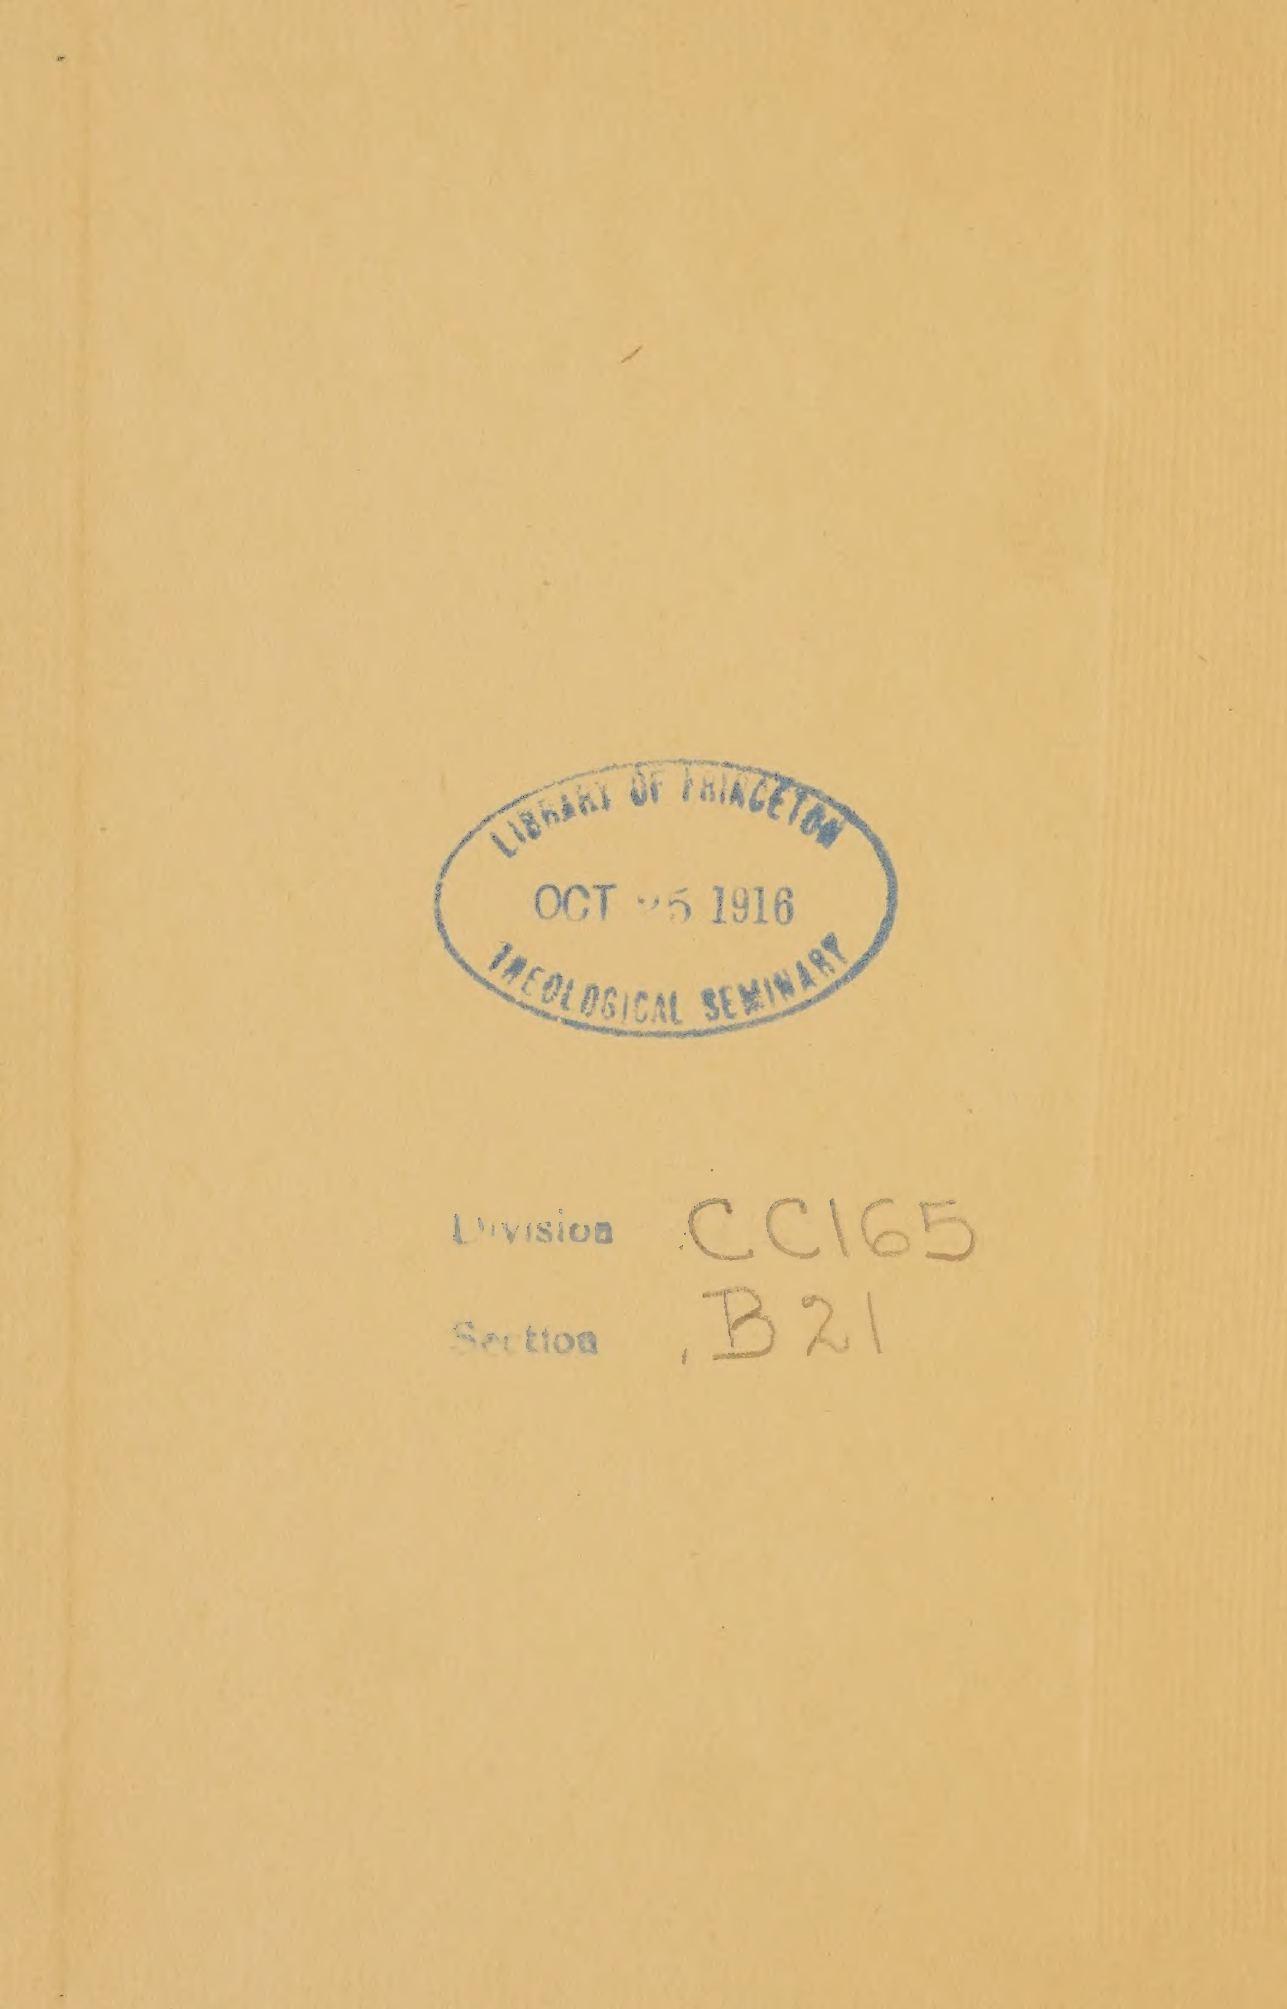 LIBRARY OF PRINCETON
OCT 25 1916
THEOLOGICAL SEMINARY
Division CC165
Section .B21